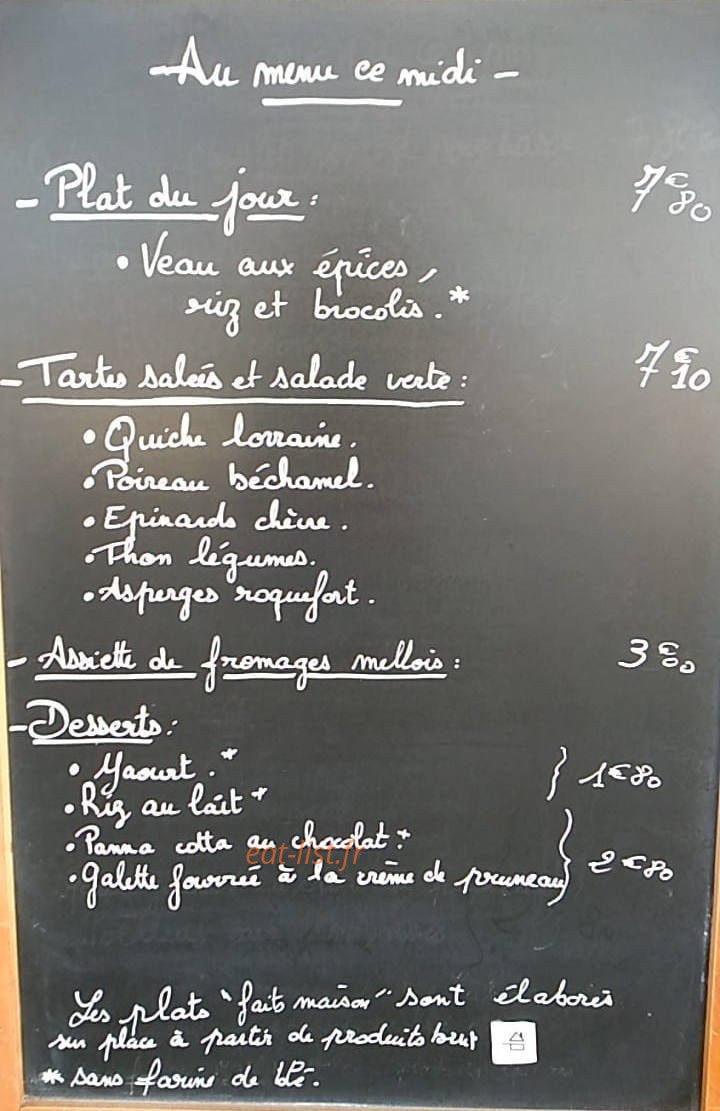 - Au menu ce midi -
- Plat du jour : 7€80
• Veau aux épices,
riz et brocolis. *
- Tartes salées et salade verte : 7€10
• Quiche lorraine.
• Poireau béchamel.
• Epinards chèvre.
• Thon légumes.
• Asperges roquefort.
- Assiette de fromages mellois : 3€
- Desserts :
• Yaourt. * } 1€80
• Riz au lait *
• Panna cotta au chocolat. * } 2€80
eat-list.fr
• Galette fourrée à la crème de pruneau
Les plats "faits maison" sont élaborés
sur place à partir de produits brut
* sans farine de blé.